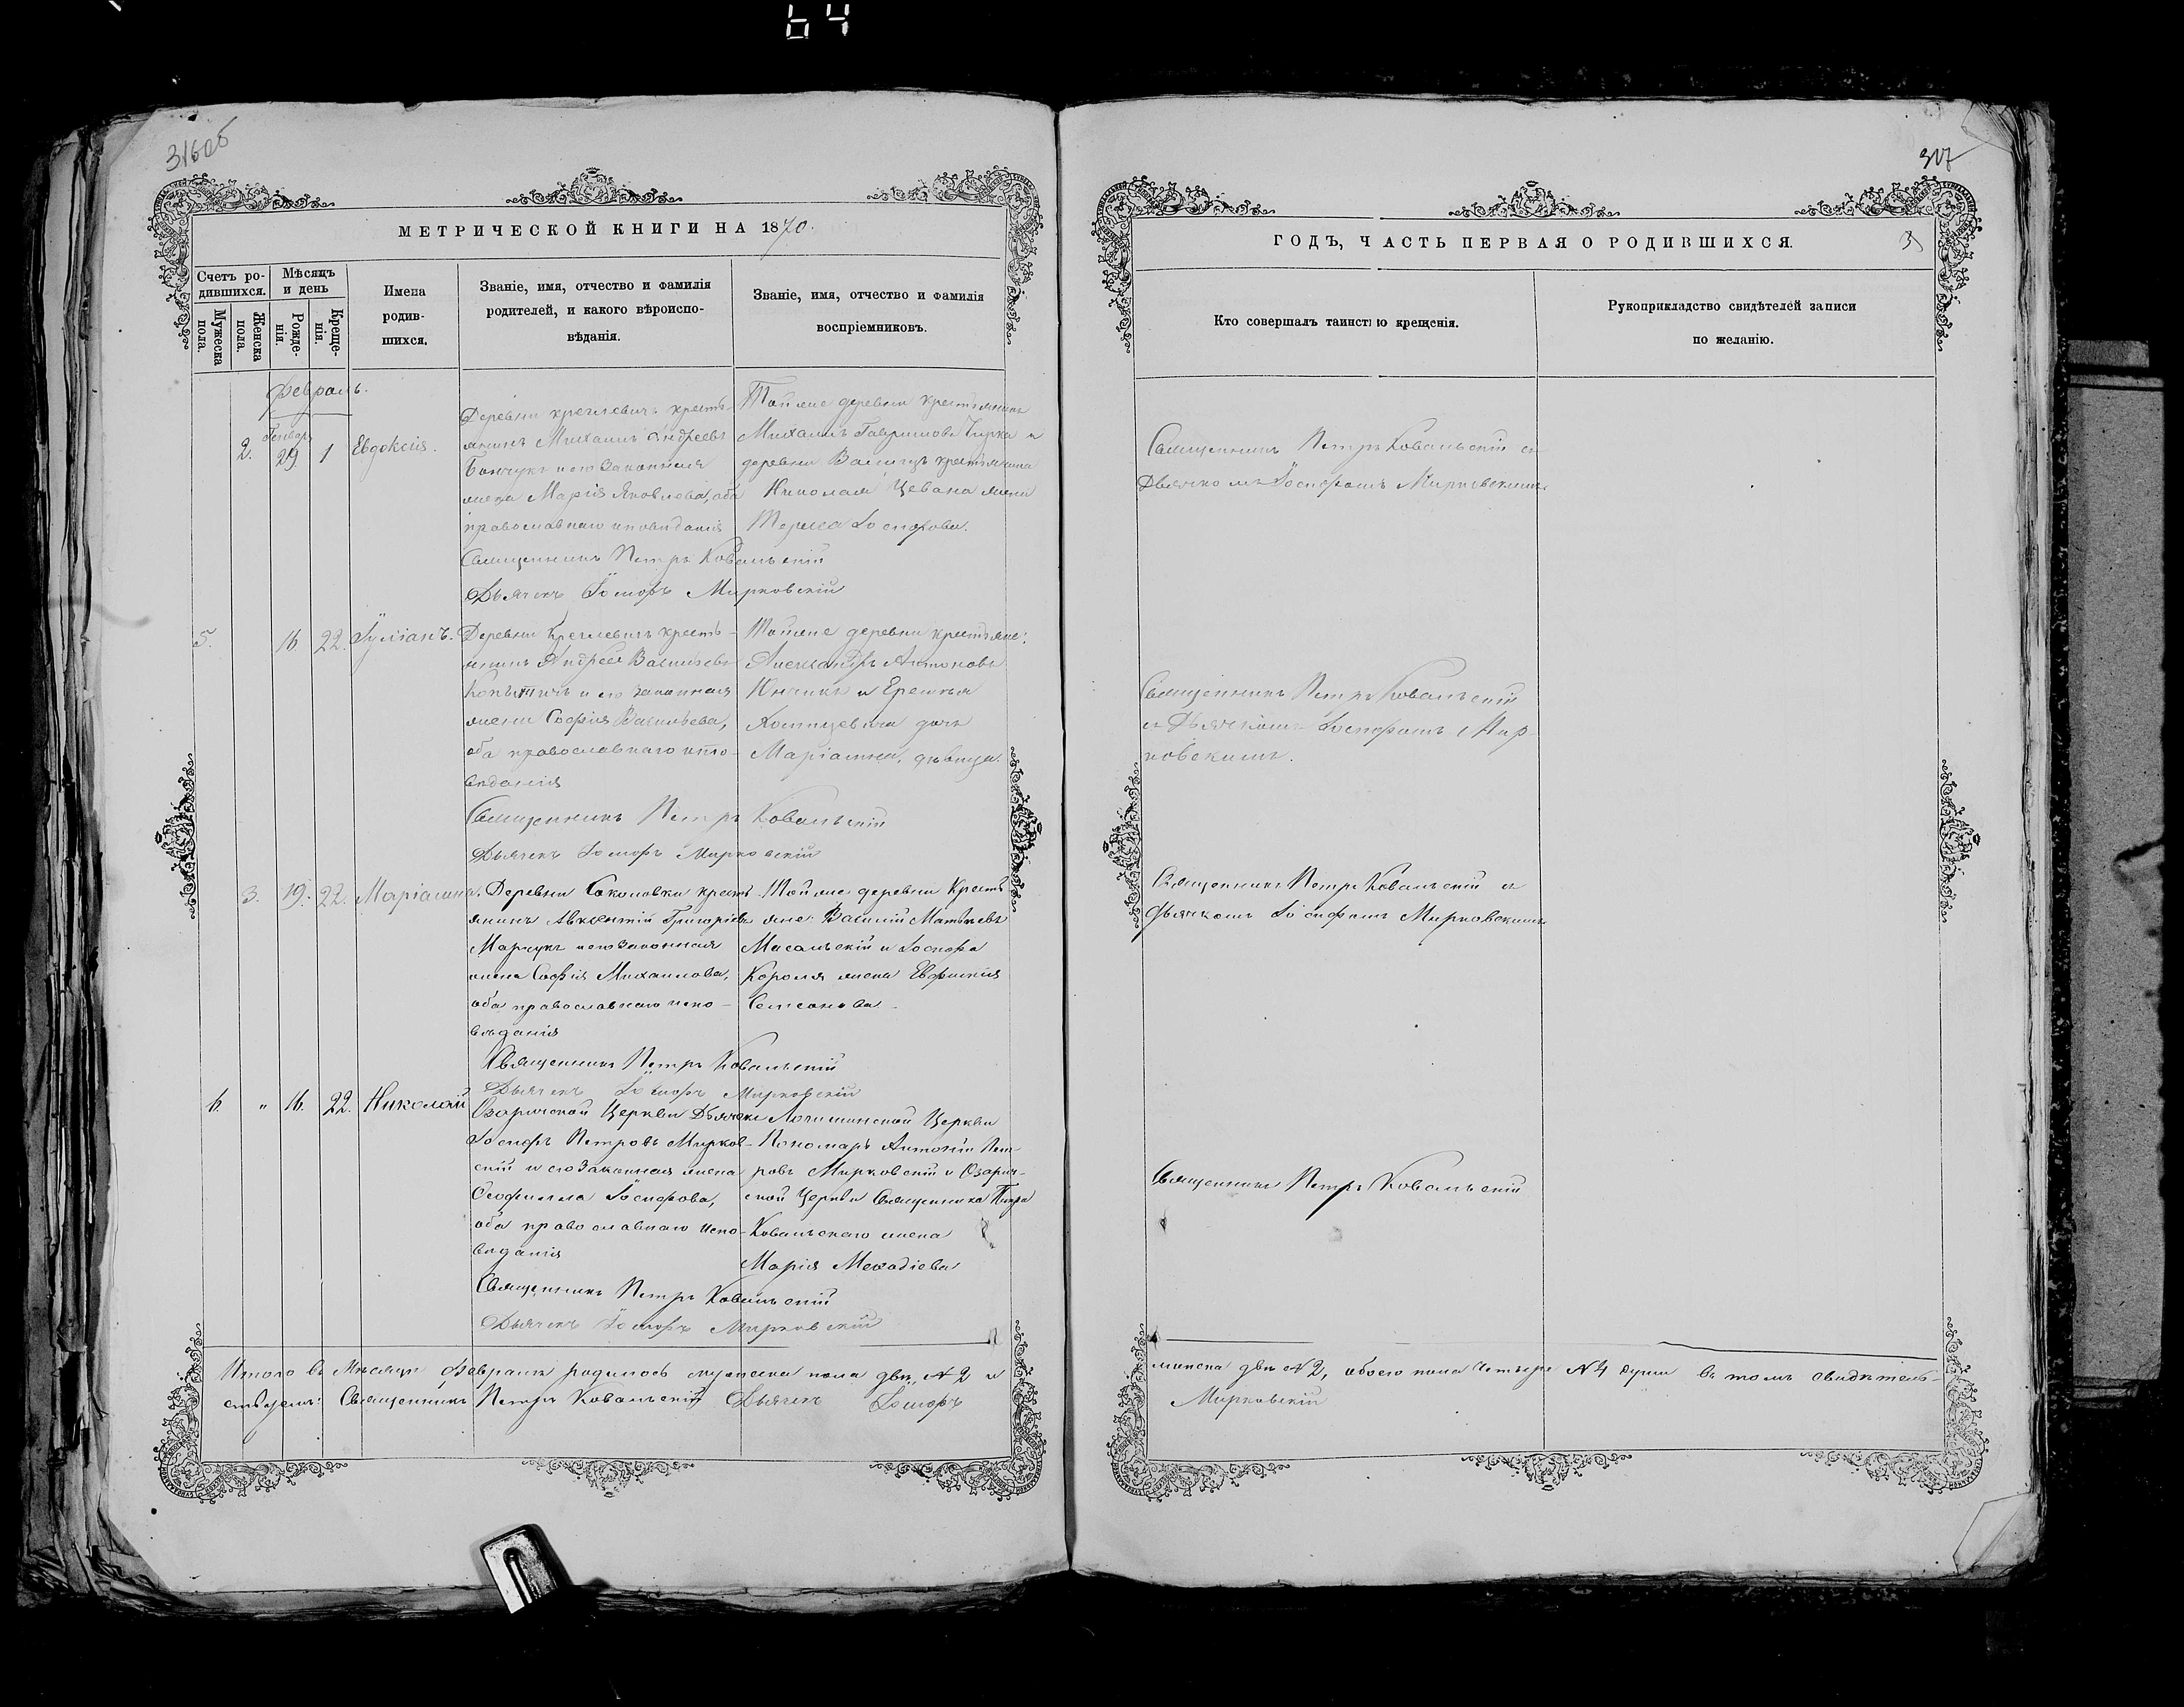 64
316об
317
МЕТРИЧЕСКОЙ КНИГИ НА 1870.
Счетъ родившихся.
Мѣсяцъ и день
Имена родившихся.
Званіе, имя, отчество и фамилія
родителей, и какого вѣроиспо-
вѣданія.
Званіе, имя, отчество и фамилія
воспріемниковъ.
Мужеска пола.
Женска пола.
Рожденія.
Крещенія.
Февраль.
2. Генварь 29 1 Евдоксія.
Деревни
крестьянинъ Михаилъ Андреевъ
и его законная
жена Марія Яковлева, оба
православнаго исповѣданія
Тойже деревни крестьянинъ
Михаилъ Гавриловъ и
деревни крестьянина
Николая жена
Іосифова.
Священникъ Петръ Ковальскій
Дьячекъ Іосифъ Мирковскій
5. 16. 22. Іуліанъ.
Деревни кресть-
янинъ Андрей Васильевъ
Копытичъ и его законная
жена Софія Васильева,
оба православнаго испо-
вѣданія
Тойже деревни крестьяне:
Александръ Антоновъ
и
дочь
Маріанна, дѣвица.
Священникъ Петръ Ковальскій
Дьячекъ Іосифъ Мирковскій
3. 19. 22. Маріанна.
Деревни Соколовки кресть-
янинъ Авксентій Григорьевъ
Марчукъ и его законная
жена Софія Михаилова,
оба православнаго испо-
вѣданія
Тойже деревни Кресть-
яне: Василій Матвѣевъ
Масальскій и Іосифа
Короля жена Евфимія
Семенова.
Священникъ Петръ Ковальскій
Дьячекъ Іосифъ Мирковскій
6. " 16. 22. Николай
Озаричской Церкви Дьячекъ
Іосифъ Петровъ Мирков-
скій и его законная жена
Феофилла Іосифова,
оба православнаго испо-
вѣданія
Логишинской Церкви
Пономарь Антоній Пет-
ровъ Мирковскій и Озарич-
ской Церкви Священника Петра
Ковальскаго жена
Марія Меѳодіева
Священникъ Петръ Ковальскій
Дьячекъ Іосифъ Мирковскій
Итого въ Мѣсяцѣ Февралѣ родилось мужеска пола два № 2 и
ствуемъ: Священникъ Петръ Ковальскій Дьячекъ Іосифъ
ГОДЪ, ЧАСТЬ ПЕРВАЯ О РОДИВШИХСЯ.
3
Кто совершалъ таинство крещенія.
Рукоприкладство свидѣтелей записи
по желанію.
Священникъ Петръ Ковальскій съ
Дьячкомъ Іосифомъ Мирковскимъ.
Священникъ Петръ Ковальскій
съ Дьячкомъ Іосифомъ Мир-
ковскимъ.
Священникъ Петръ Ковальскій съ
Дьячкомъ Іосифомъ Мирковскимъ
Священникъ Петръ Ковальскій
женска двѣ № 2, обоего пола четыре № 4 души въ томъ свидѣтель-
Мирковскій